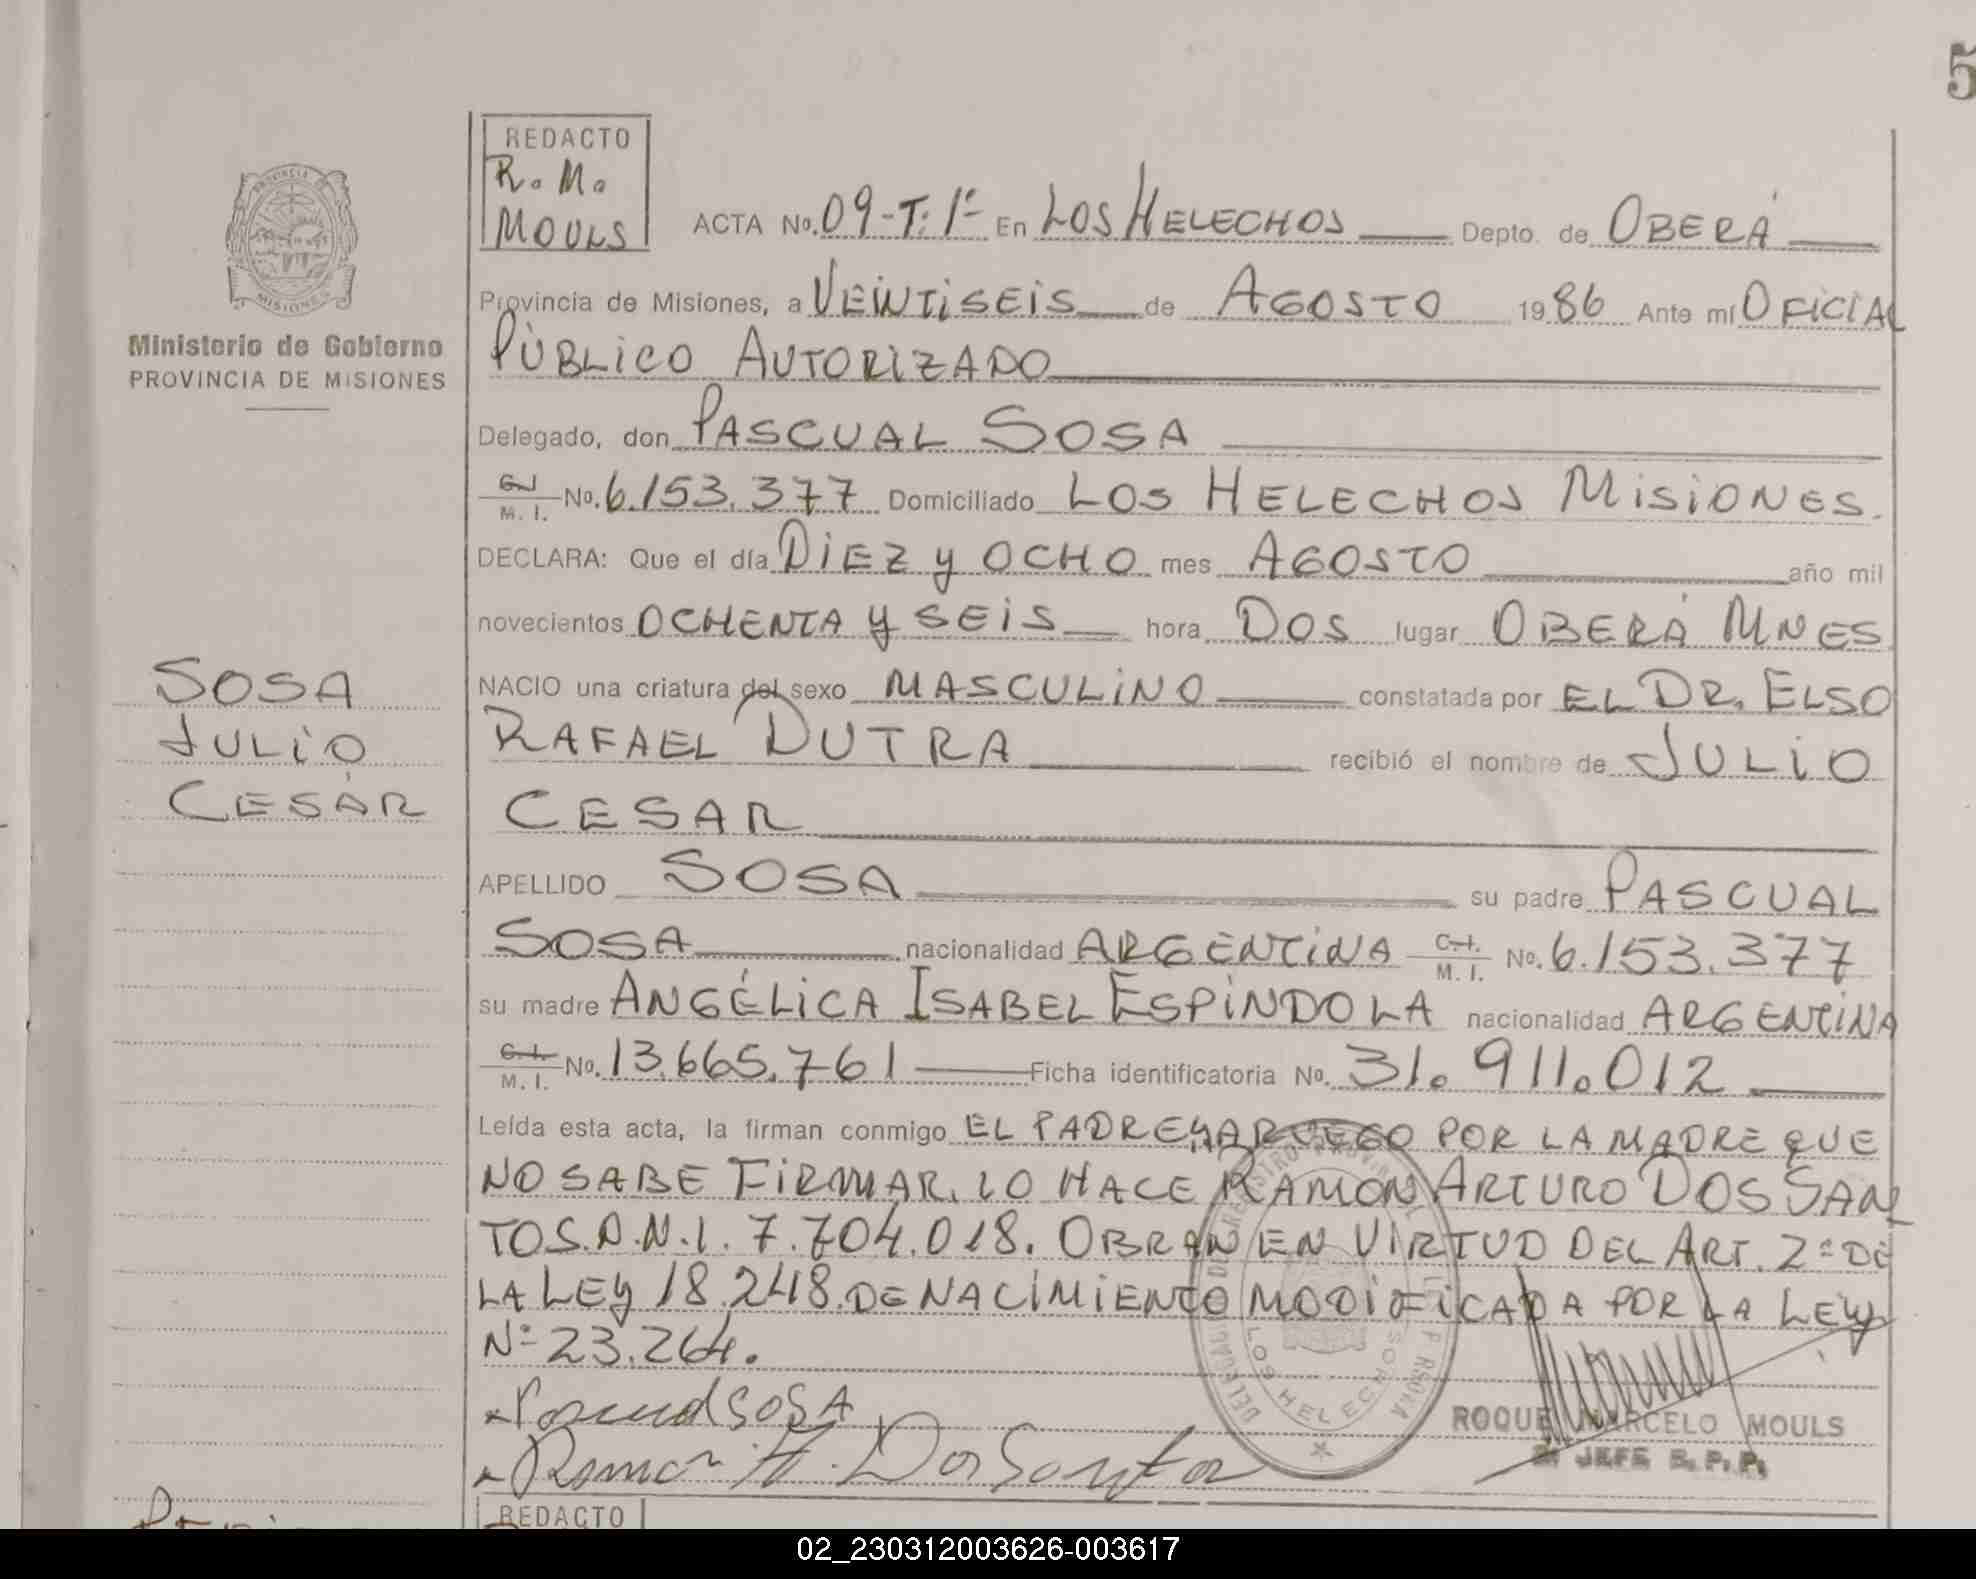 5
REDACTO
R. M.
MOULS
ACTA No. 09-T: 1º En LOS HELECHOS Depto. de OBERÁ
Provincia de Misiones, a VEINTISEIS de AGOSTO 1986 Ante mí OFICIAL
PÚBLICO AUTORIZADO
PROVINCIA DE
MISIONES
Ministerio de Gobierno
PROVINCIA DE MISIONES
Delegado, don PASCUAL SOSA
C.I. M. I. No. 6.153.377 Domiciliado LOS HELECHOS MISIONES.
DECLARA: Que el día DIEZ Y OCHO mes AGOSTO año mil
novecientos OCHENTA Y SEIS hora DOS lugar OBERÁ MNES
NACIO una criatura del sexo MASCULINO constatada por EL DR. ELSO
RAFAEL DUTRA recibió el nombre de JULIO
CESAR
SOSA
JULIO
CESAR
APELLIDO SOSA su padre PASCUAL
SOSA nacionalidad ARGENTINA C.I. M. I. No. 6.153.377
su madre ANGÉLICA ISABEL ESPINDOLA nacionalidad ARGENTINA
C.I. M. I. No. 13.665.761 Ficha identificatoria No. 31.911.012
Leída esta acta, la firman conmigo EL PADRE Y A RUEGO POR LA MADRE QUE
NO SABE FIRMAR, LO HACE RAMON ARTURO DOS SAN
TOS. D.N.I. 7.704.018. OBRAN EN VIRTUD DEL ART. 2º DE
LA LEY 18.248. DE NACIMIENTO MODIFICADA POR LA LEY
Nº 23.264.
Pascual SOSA
Ramon A. Dos Santos
LOS HELECHOS
ROQUE MARCELO MOULS
JEFE B. P. P.
REDACTO
02_230312003626-003617